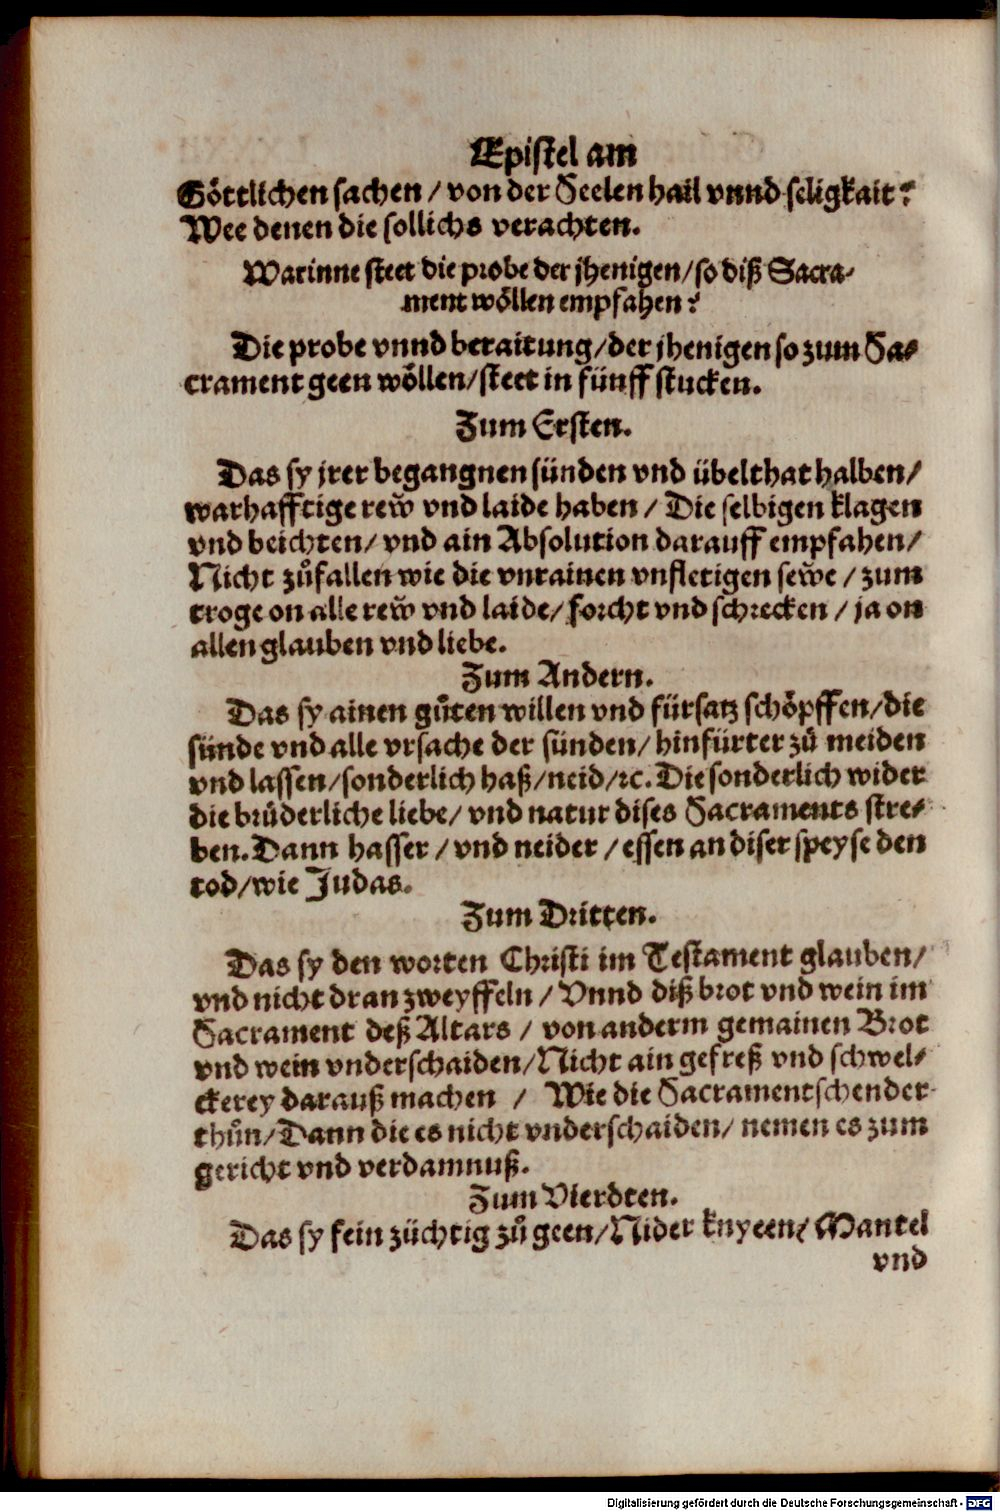 Epistel am
Göttlichen sachen / von der Seelen hail vnnd seligkait?
Wee denen die sollichs verachten.
Warinne steet die probe der jhenigen / so diß Sacra-
ment wöllen empfahen?
Die probe vnnd beraitung / der jhenigen so zum Sa-
crament geen wöllen / steet in fünff stucken.
Zum Ersten.
Das sy jrer begangnen sünden vnd übelthat halben /
warhafftige rew̃ vnd laide haben / Die selbigen klagen
vnd beichten / vnd ain Absolution darauff empfahen /
Nicht zůfallen wie die vnrainen vnfletigen sew̃e / zum
troge on alle rew̃ vnd laide / forcht vnd schrecken / ja on
allen glauben vnd liebe.
Zum Andern.
Das sy ainen gůten willen vnd fürsatz schöpffen / die
sünde vnd alle vrsache der sünden / hinfürter zů meiden
vnd lassen / sonderlich haß / neid / ꝛc. Die sonderlich wider
die brůderliche liebe / vnd natur dises Sacraments stre-
ben. Dann hasser / vnd neider / essen an diser speyse den
tod / wie Judas.
Zum Dritten.
Das sy den worten Christi im Testament glauben /
vnd nicht dran zweyffeln / Vnnd diß brot vnd wein im
Sacrament deß Altars / von anderm gemainen Brot
vnd wein vnderschaiden / Nicht ain gefreß vnd schwel-
ckerey darauß machen / Wie die Sacramentschender
thůn / Dann die es nicht vnderschaiden / nemen es zum
gericht vnd verdamnuß.
Zum Vierdten.
Das sy fein züchtig zů geen / Nider knyeen / Mantel
vnd
Digitalisierung gefördert durch die Deutsche Forschungsgemeinschaft - DFG